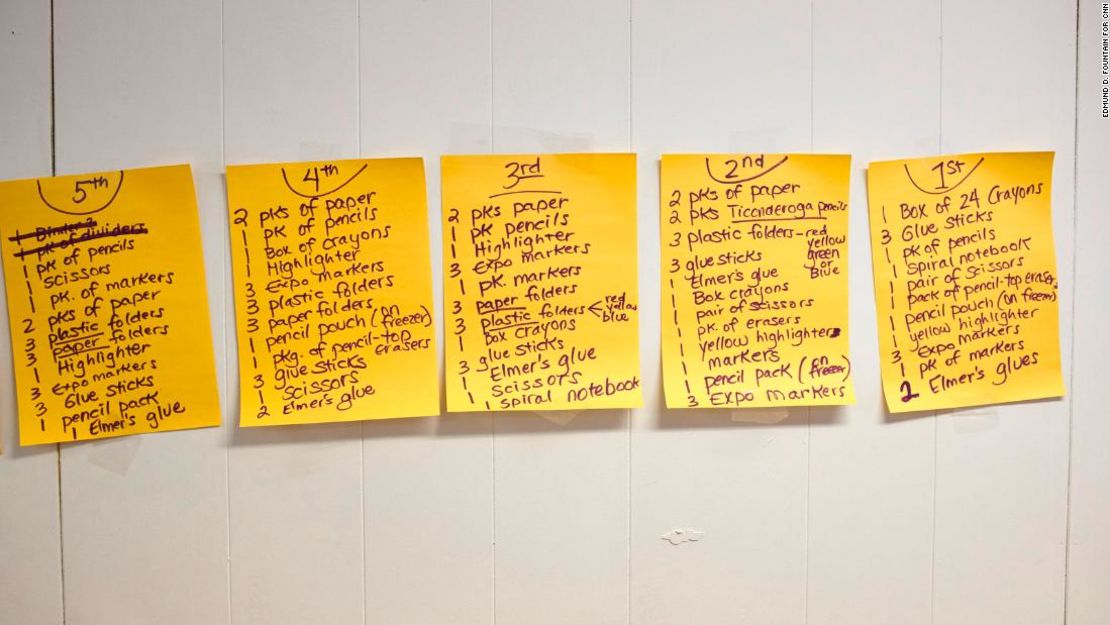 5th
1 Binder 2"
1 pk of dividers
1 pk of pencils
1 Scissors
1 pk. of markers
2 pks of paper
3 plastic folders
3 paper folders
1 Highlighter
3 Expo markers
3 Glue sticks
1 pencil pack
1 Elmer's glue
4th
2 pks of paper
1 pk of pencils
1 Box of crayons
1 Highlighter
3 Expo markers
3 plastic folders
3 paper folders
1 pencil pouch (on freezer)
1 pkg. of pencil-top erasers
3 glue sticks
1 Scissors
2 Elmer's glue
3rd
2 pks paper
1 pk pencils
1 Highlighter
3 Expo markers
1 pk. markers
3 paper folders
3 plastic folders ← red yellow blue
1 box crayons
3 glue sticks
1 Elmer's glue
1 Scissors
1 spiral notebook
2nd
2 pks of paper
2 pks Ticonderoga pencils
3 plastic folders - red yellow green or Blue
3 glue sticks
1 Elmer's glue
1 Box crayons
1 pair of scissors
1 pk. of erasers
1 yellow highlighter
1 markers
1 pencil pack (on freezer)
3 Expo markers
1st
1 Box of 24 Crayons
3 Glue sticks
1 pk of pencils
1 Spiral notebook
1 pair of Scissors
1 pack of pencil-top erasers
1 pencil pouch (on freezer)
1 yellow highlighter
3 Expo markers
1 pk of markers
2 Elmer's glues
EDMUND D. FOUNTAIN FOR CNN